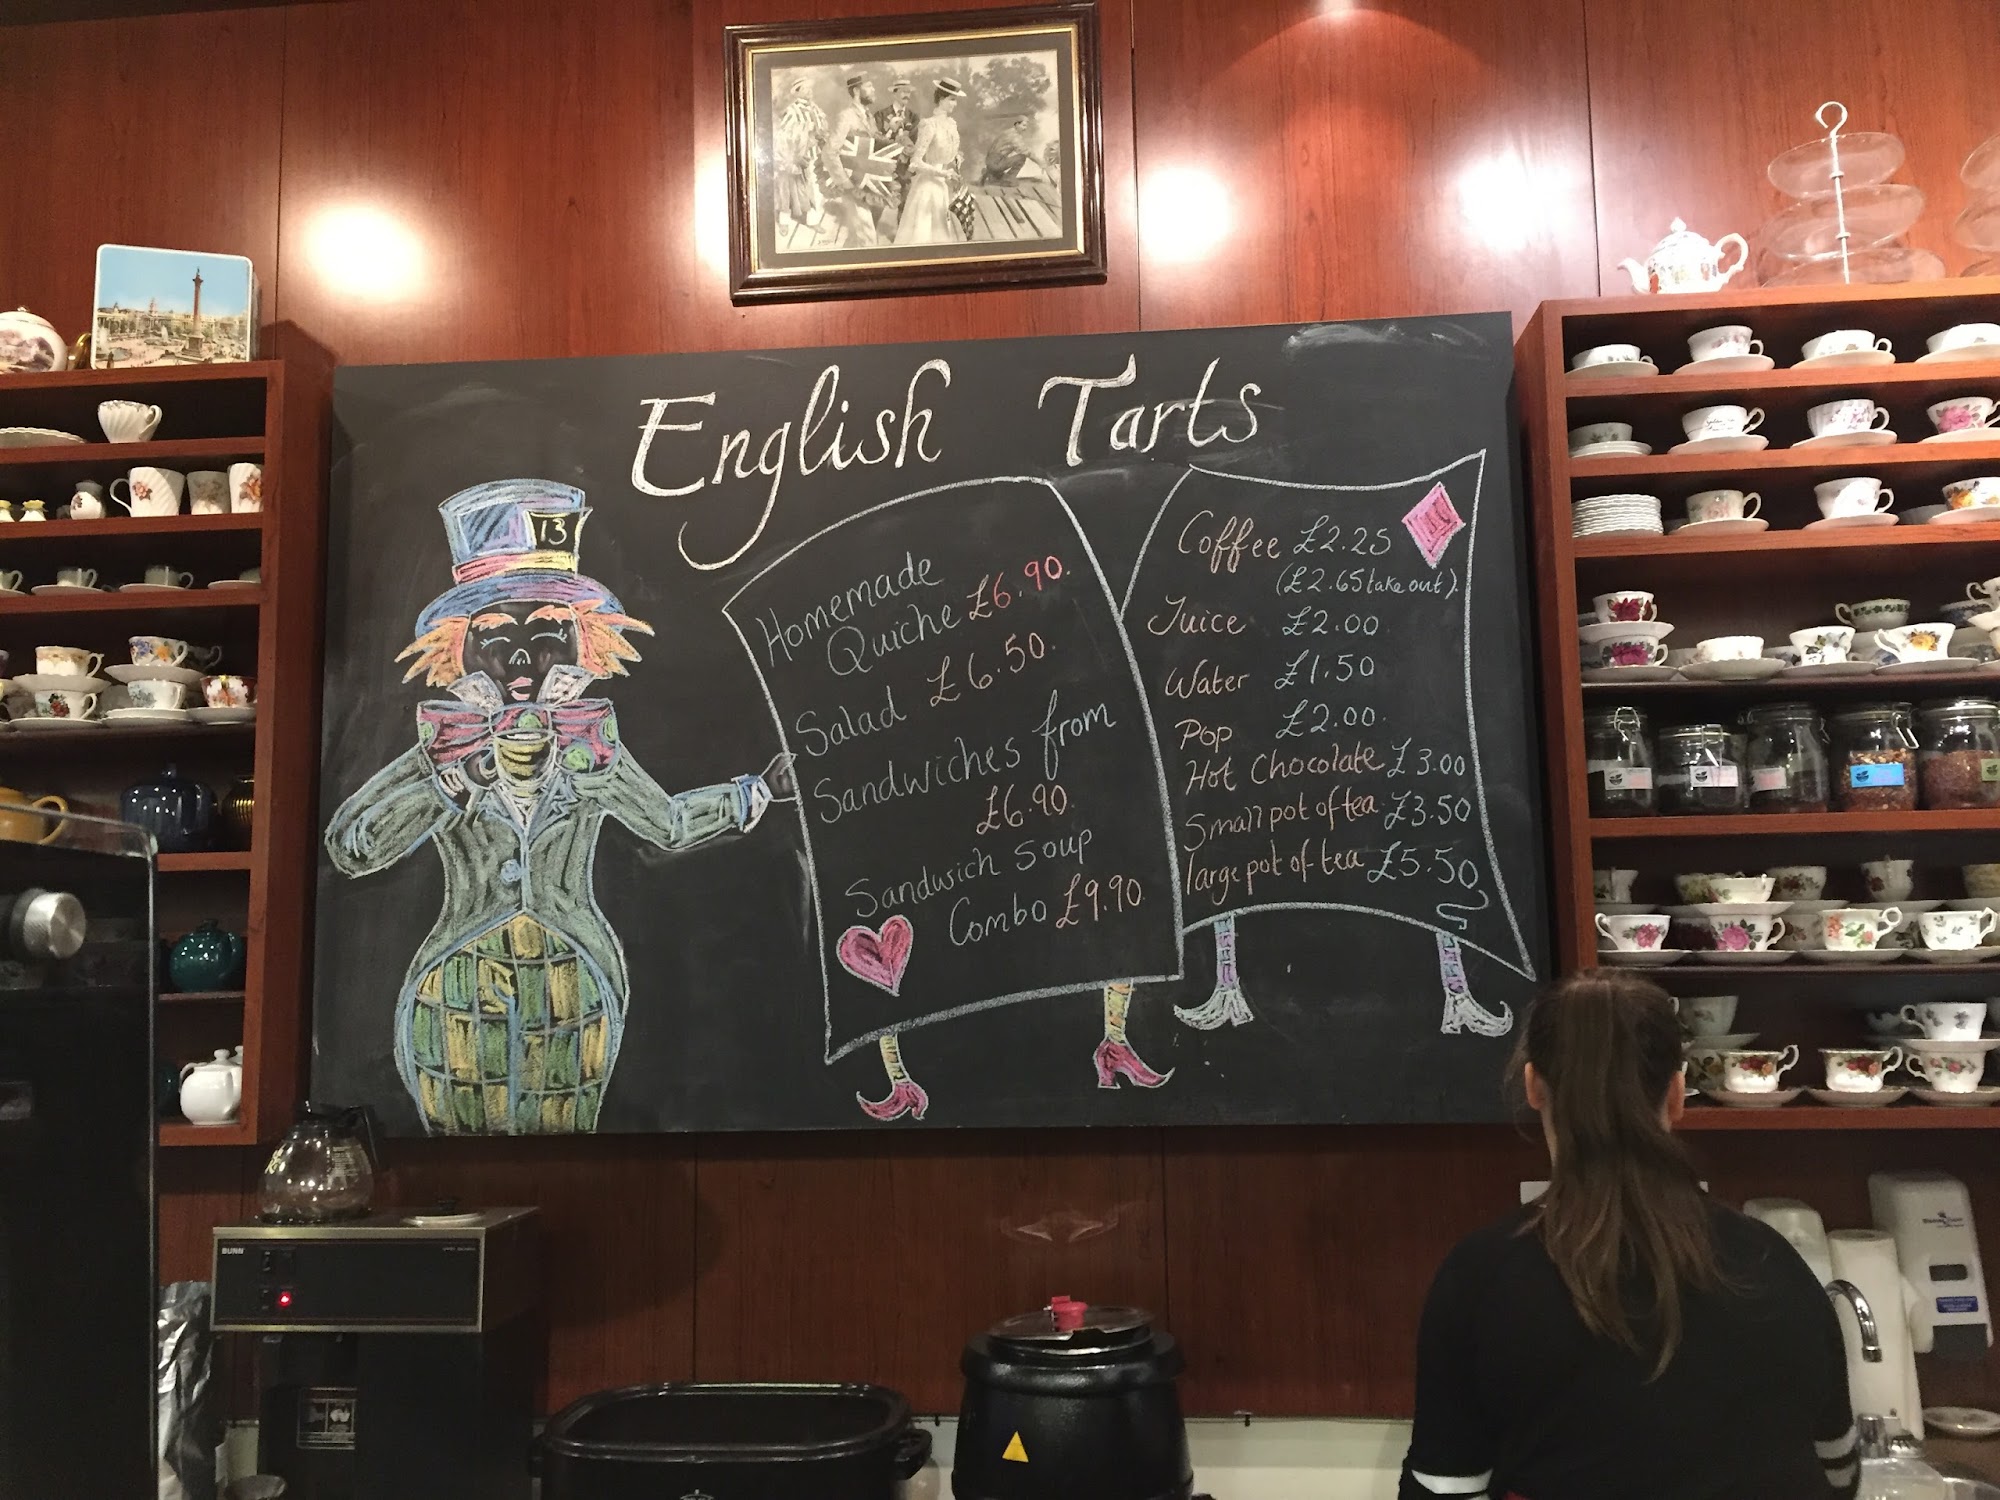 English Tarts
13
Homemade
Quiche £6.90.
Salad £6.50.
Sandwiches from
£6.90.
Sandwich Soup
Combo £9.90.
Coffee £2.25
(£2.65 take out).
Juice £2.00
Water £1.50
Pop £2.00.
Hot Chocolate £3.00
Small pot of tea £3.50
large pot of tea £5.50
BUNN